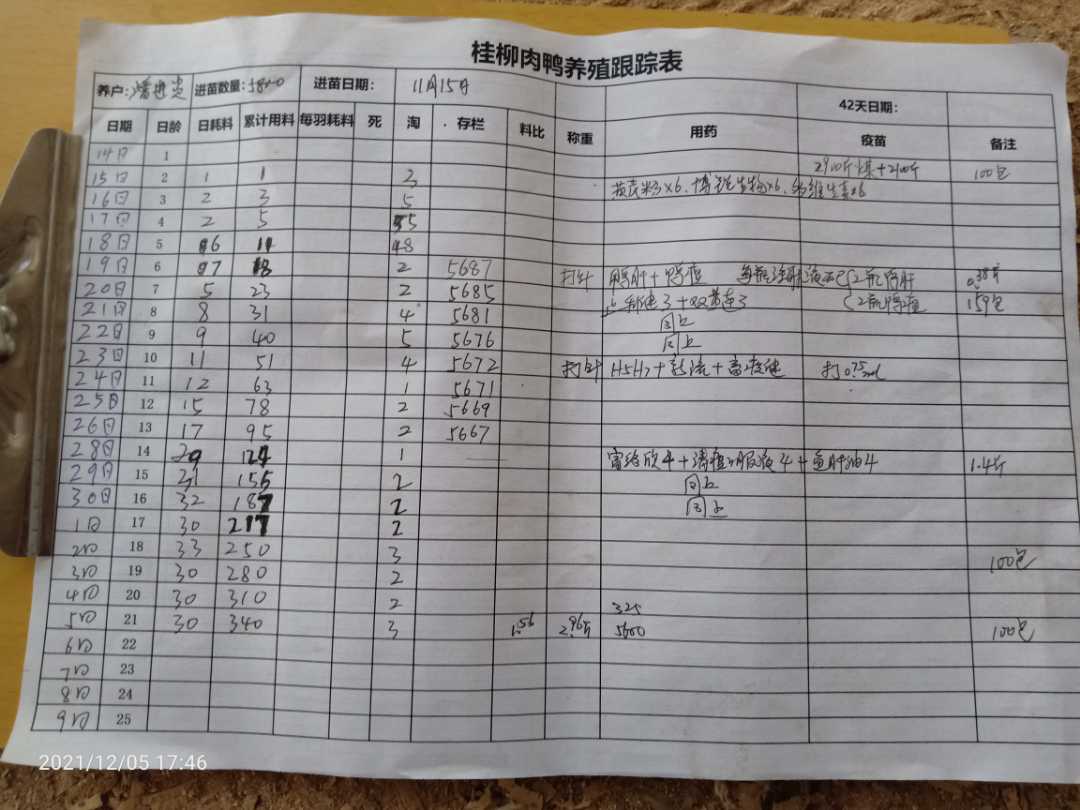 桂柳肉鸭养殖跟踪表
养户: 进苗数量:5800 进苗日期: 11月15日 42天日期:
日期 日龄 日耗料 累计用料 每羽耗料 死 淘 存栏 料比 称重 用药 疫苗 备注
14日 1
15日 2 1 1 3 2900斤煤+2100斤 100包
16日 3 2 3 5 ×6. ×6. ×6
17日 4 2 5 55
18日 5 6 11 48
19日 6 7 18 2 5687 打针 鸭肝+ 2瓶鸭肝 0.38
20日 7 5 23 2 5685 3+双黄连3 2瓶 159包
21日 8 8 31 4 5681 同上
22日 9 9 40 5 5676 同上
23日 10 11 51 4 5672 打针 H5H7+ + 打0.75ml
24日 11 12 63 1 5671
25日 12 15 78 2 5669
26日 13 17 95 2 5667
28日 14 29 124 1 4+ 4+鱼肝油4 1.4斤
29日 15 31 155 2 同上
30日 16 32 187 2 同上
1日 17 30 217 2
2日 18 33 250 3 100包
3日 19 30 280 2
4日 20 30 310 2 325
5日 21 30 340 3 1.56 2.96斤 5600 100包
6日 22
7日 23
8日 24
9日 25
2021/12/05 17:46